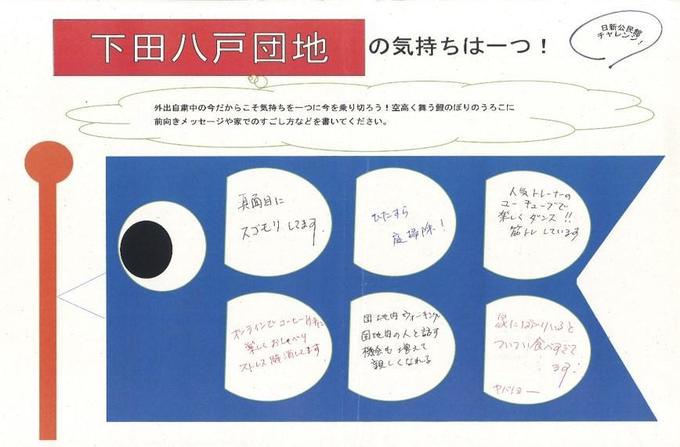 下田八戸団地の気持ちは一つ！
日新公民館
チャレンジ！
外出自粛中の今だからこそ気持ちを一つに今を乗り切ろう！空高く舞う鯉のぼりのうろこに
前向きメッセージや家でのすごし方などを書いてください。
真面目に
スゴモリしてます。
ひたすら
庭掃除！
人気トレーナーの
ユーチューブで
楽しくダンス！！
筋トレしています
オンラインでコーヒー片手に
楽しくおしゃべり
ストレス解消してます
団地内ウォーキング
団地内の人と話す
機会も増えて
親しくなれる
家にばかりいると
ついつい食べすぎて
ます！
ヤバイヨー